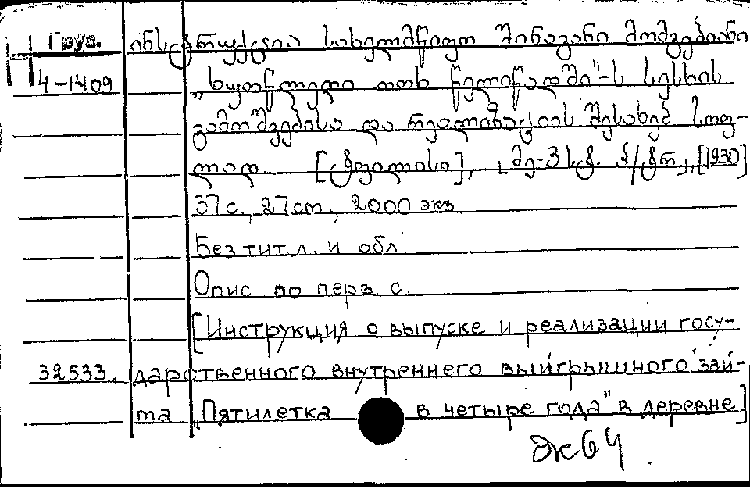 Груз. ინსტრუქცია სახელმწიფო შინაგანი მომგებიანი
4-1409 „ხუთწლედი ოთხ წელიწადში"-ს სესხის
გამოშვებისა და რეალიზაციის შესახებ სოფ-
ლად [ტფილისი], [1930]
37 с., 27 см, 2000 экз.
Без тит. л. и обл.
Опис. по перв. с.
[Инструкция о выпуске и реализации госу-
32533. дарственного внутреннего выигрышного зай-
ма „Пятилетка в четыре года" в деревне]